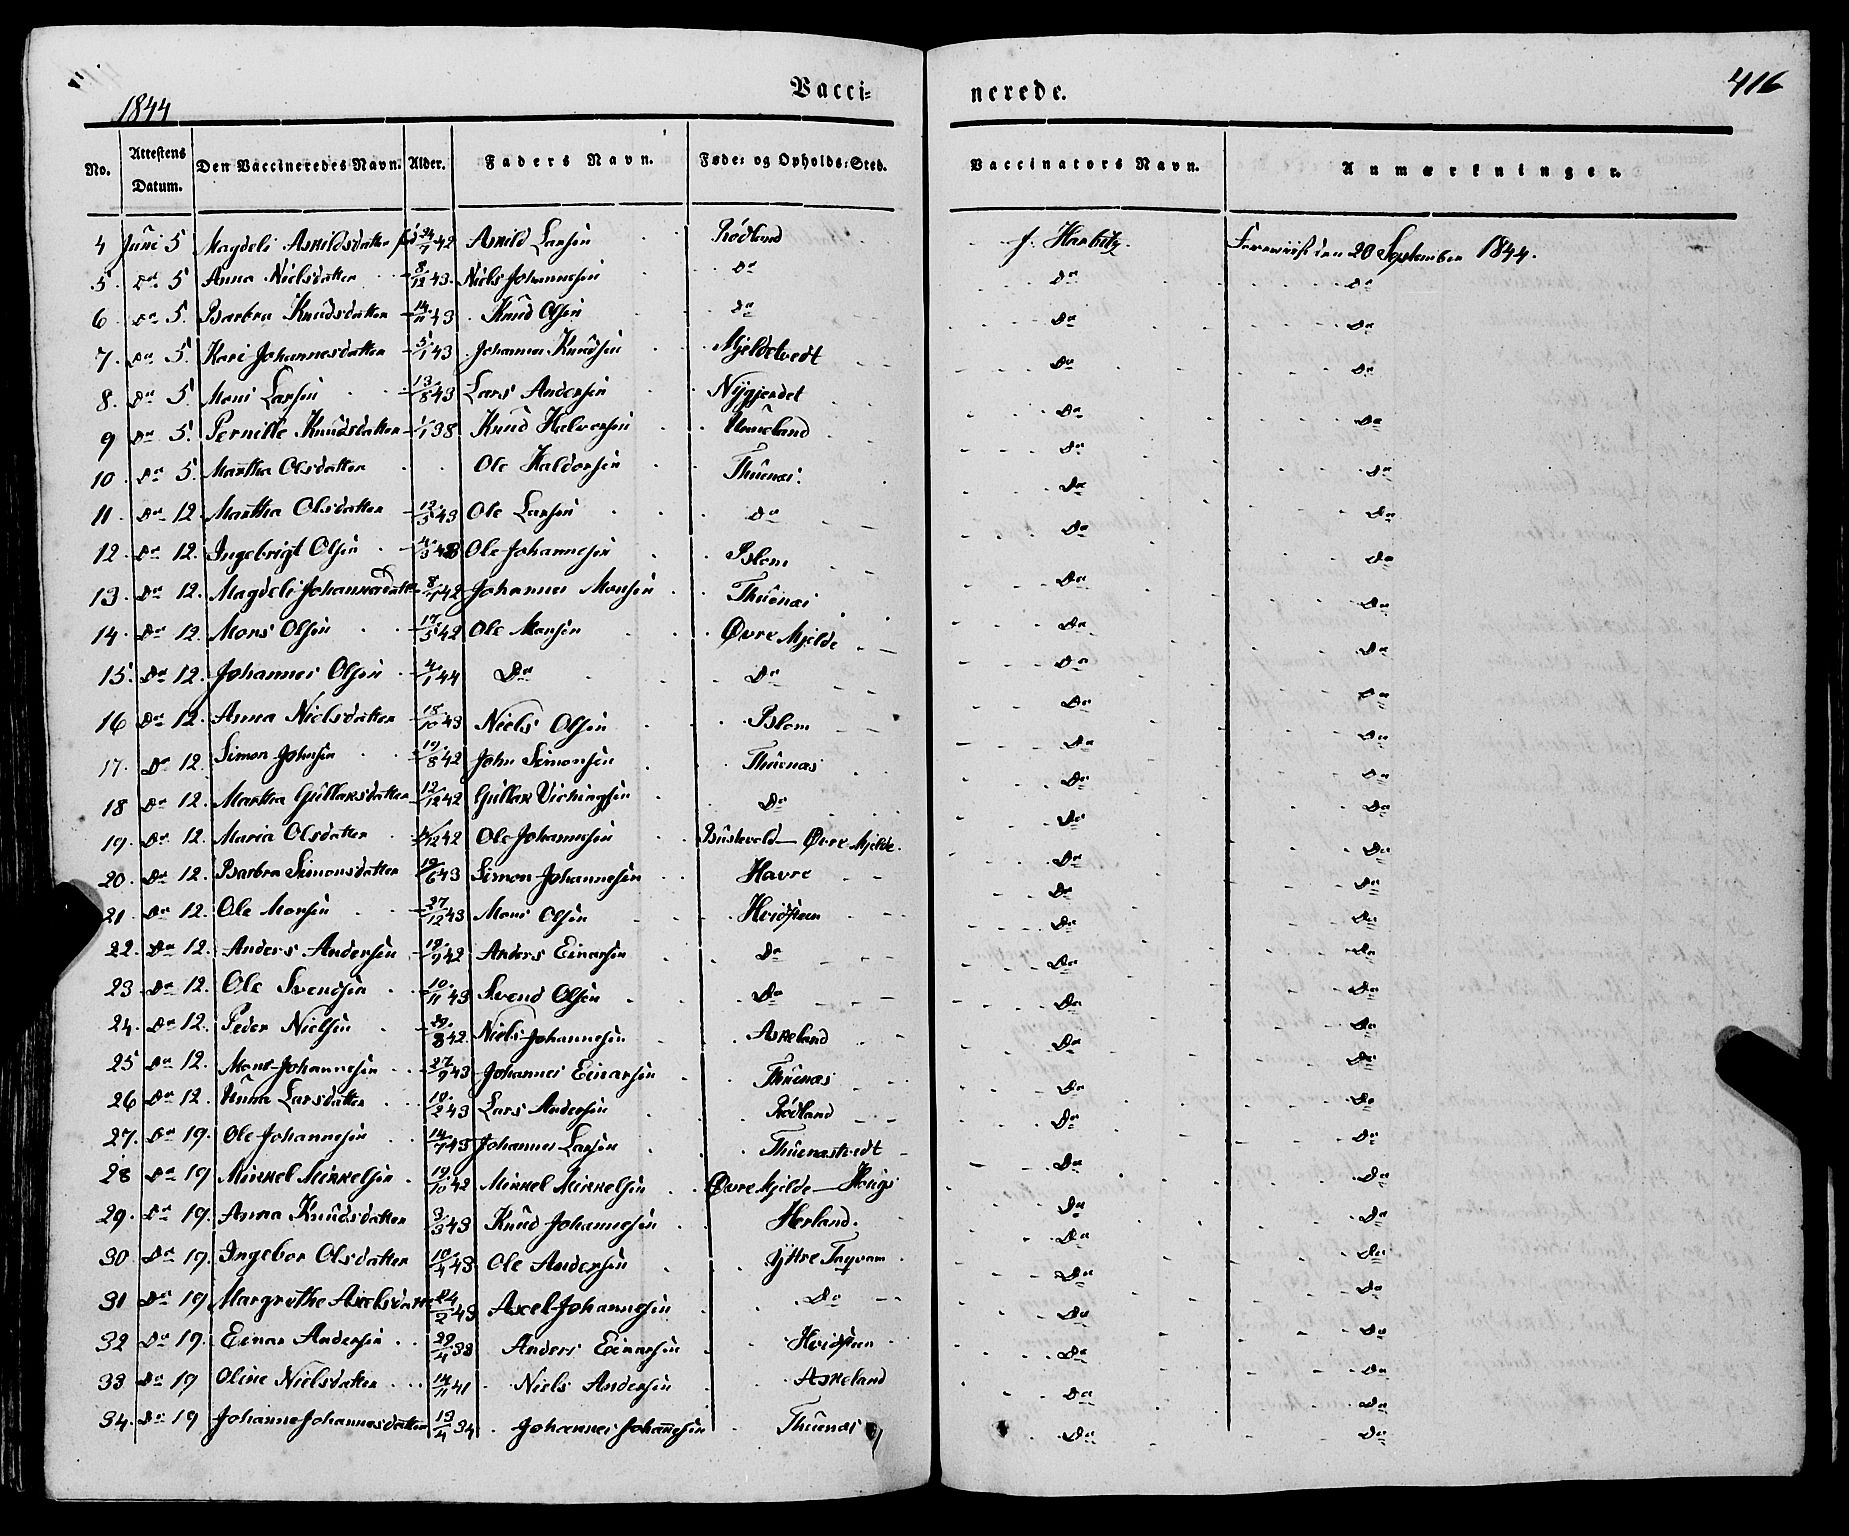 Vacci= nerede.
416
1844
No. Attestens Datum. Den Vaccineredes Navn. Alder. Faders Navn. Føde= og Opholds=Sted. Vaccinators Navn. Anmærkninger.
4 Juni 5 Magdeli Askildsdatter fød 24/7 42 Askild Larsen Rødland J. Harbitz Foreviist den 20 September 1844.
5 Do 5 Anna Nielsdatter 8/12 43. Niels Johannesen Do Do Do
6 Do 5. Barbra Knudsdatter 14/11 43 Knud Olsen Do Do Do
7. Do 5. Kari Johannesdatter 5/1 43 Johannes Knudsen Mjeldetvedt Do Do
8. Do 5. Mons Larsen 13/8 43 Lars Andersen Nÿgjerdet Do Do
9 Do 5. Pernille Knudsdatter 1/1 38 Knud Halvorsen Unneland Do Do
10 Do 5. Martha Olsdatter Ole Haldorsen Thuenæs. Do Do
11 Do 12 Martha Olsdatter 12/5 43 Ole Larsen Do Do Do
12. Do 12. Ingebrigt Olsen 4/3 43 Ole Johannesen Blom Do Do
13. Do 12. Magdeli Johannesdatter 8/1 42 Johannes Monsen Thuenæs Do Do
14. Do 12. Mons Olsen 17/5 42 Ole Monsen Øvre Mjelde Do Do
15. Do 12. Johannes Olsen 4/1 44 Do Do Do Do
16 Do 12. Anna Nielsdatter 18/10 43 Niels Olsen Blom Do Do
17. Do 12. Simon Johnsen 19/8 42 John Simonsen Thuenæs Do Do
18 Do 12. Martha Gullaksdatter 12/12 42 Gullak Vichingsen Do Do Do
19. Do 12. Maria Olsdatter /12 42 Ole Johannesen Øvre Mjelde. Do Do
20. Do 12. Barbra Simonsdatter 19/6 43 Simon Johannesen Havre Do Do
21. Do 12. Ole Monsen 27/12 43 Mons Olsen Hvidsteen Do Do
22. Do 12. Anders Andersen 12/9 42 Anders Einarsen Do Do Do
23 Do 12. Ole Svendsen 10/11 43 Svend Olsen Do Do Do
24. Do 12. Peder Nielsen /8 42. Niels Johannesen Askeland Do Do
25 Do 12. Mons Johannesen 27/9 43 Johannes Einarsen Thuenæs Do Do
26 Do 12. Anna Larsdatter 10/2 43 Lars Andersen Rødland Do Do
27. Do 19. Ole Johannesen 14/7 43 Johannes Larsen Thuenæstvedt Do Do
28 Do 19 Mikkel Mikkelsen 19/10 42 Mikkel Mikkelsen Øvre Mjelde — Houge Do Do
29. Do 19. Anna Knudsdatter 3/3 43 Knud Johannesen Herland. Do Do
30 Do 19. Ingebor Olsdatter 10/4 43 Ole Andersen Ÿttre Taqvam Do Do
31 Do 19 Margrethe Axelsdatter 24/2 43 Axel Johannesen Do Do Do
32 Do 19. Einar Andersen 29/4 38 Anders Einarsen Hvidsteen Do Do
33 Do 19 Oline Nielsdatter 14/11 41 Niels Andersen Askeland Do Do
34. Do 19 Johanna Johannesdatter 13/4 34 Johannes Johannesen Thuenæs Do Do